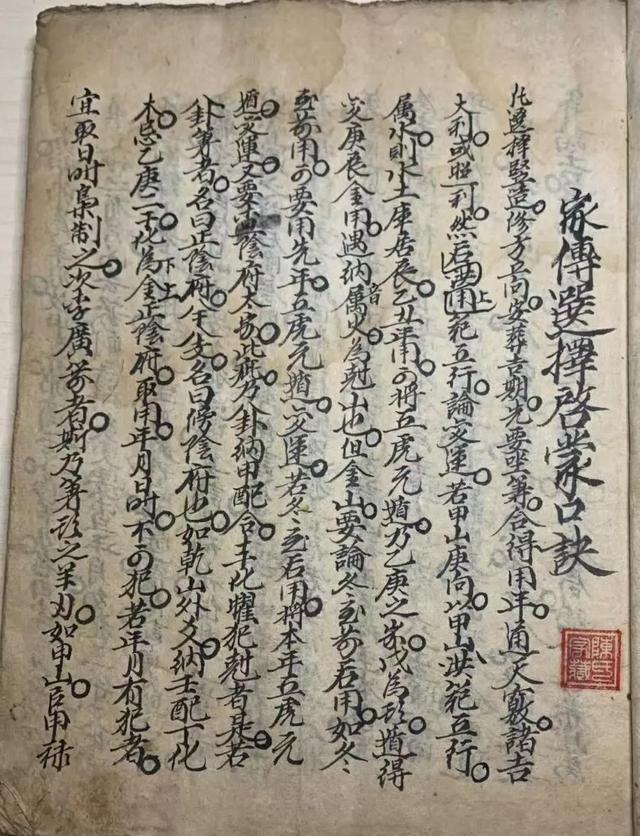 家傳選擇啓蒙口訣
凡選擇竪造修方立向安葬吉期先要坐算合得用年通天竅諸吉
大利或照利然后範五行論变運若甲山庚向以甲山洪範五行
属水則水土庫居辰乙丑年用可將五虎元遁乃乙庚之歲戊為頭遁得
变庚辰金用遇納音属火為尅山也但金山要論冬至前后用如冬
至前用可要用先年五虎元遁变運若冬至后用將本年五虎元
遁变運又要陰府太歲此乃卦納甲配合化曜犯尅者是若
卦算者名曰正陰府干支名曰傍陰府也如乾山外爻納壬配丁化
木忌乙庚二干化為金正陰府取用年月日时不可犯若年月有犯者
宜取日时梟制之次李廣箭者斯乃算頭之羊刃如甲山臣甲祿
陳氏家藏